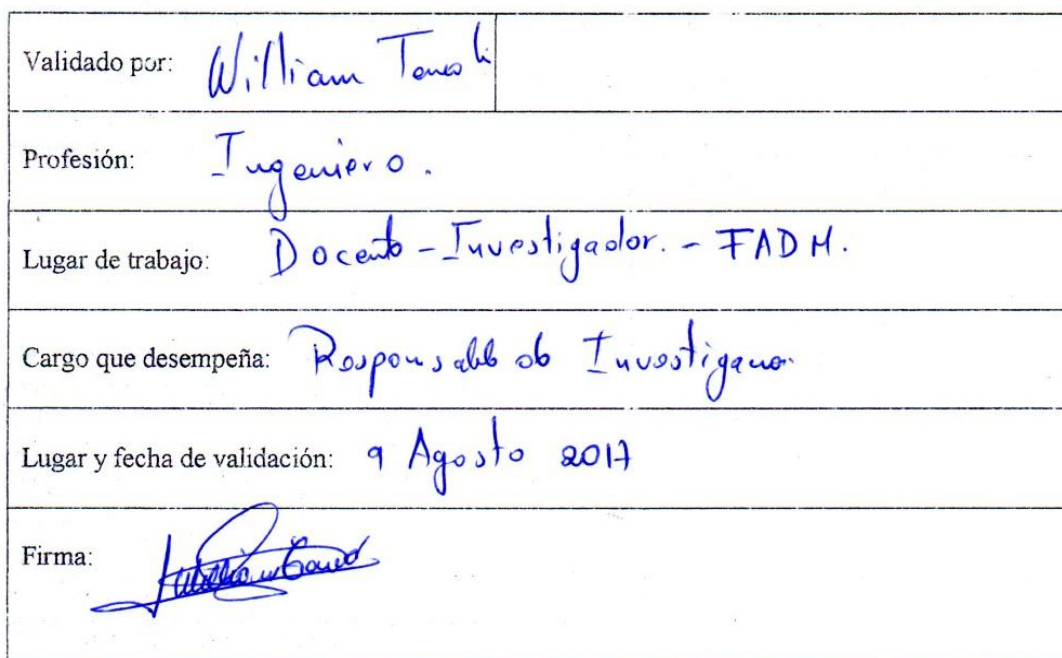 Validado por: William
Profesión: Ingeniero.
Lugar de trabajo: Docente - Investigador. - FADM.
Cargo que desempeña: Responsable de Investigación
Lugar y fecha de validación: 9 Agosto 2017
Firma: